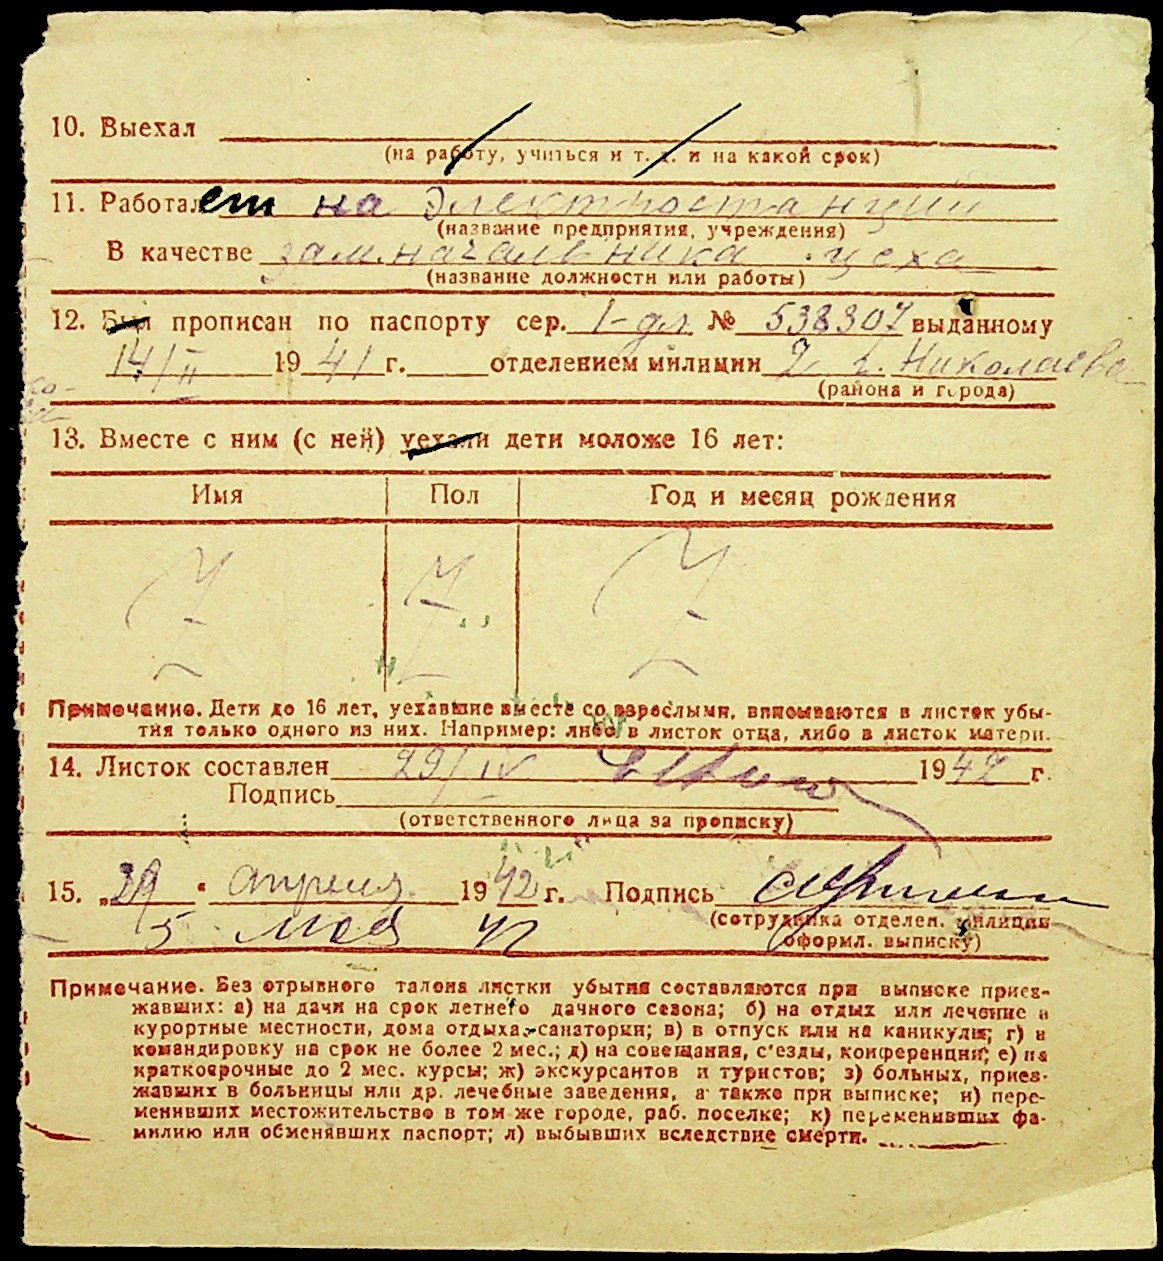 10. Выехал
(на работу, учиться и т. д. и на какой срок)
11. Работает на Электростанции
(название предприятия, учреждения)
В качестве зам. начальника цеха
(название должности или работы)
12. Был прописан по паспорту сер. 1-дл № 538307 выданному
14/II 1941 г. отделением милиции 2 г. Николаева
(района и города)
13. Вместе с ним (с ней) уехали дети моложе 16 лет:
Имя Пол Год и месяц рождения
Z Z Z
Примечание. Дети до 16 лет, уехавшие вместе со взрослыми, вписываются в листок убы-
тия только одного из них. Например: либо в листок отца, либо в листок матери.
14. Листок составлен 29/IV 1942 г.
Подпись
(ответственного лица за прописку)
15. „29" апреля 1942 г. Подпись
(сотрудника отделен. милиции
5 мая 42 оформл. выписку)
Примечание. Без отрывного талона листки убытия составляются при выписке приез-
жавших: а) на дачи на срок летнего дачного сезона; б) на отдых или лечение в
курортные местности, дома отдыха, санатории; в) в отпуск или на каникулы; г) в
командировку на срок не более 2 мес.; д) на совещания, с'езды, конференции; е) на
краткосрочные до 2 мес. курсы; ж) экскурсантов и туристов; з) больных, приез-
жавших в больницы или др. лечебные заведения, а также при выписке; и) пере-
менивших местожительство в том же городе, раб. поселке; к) переменивших фа-
милию или обменявших паспорт; л) выбывших вследствие смерти.